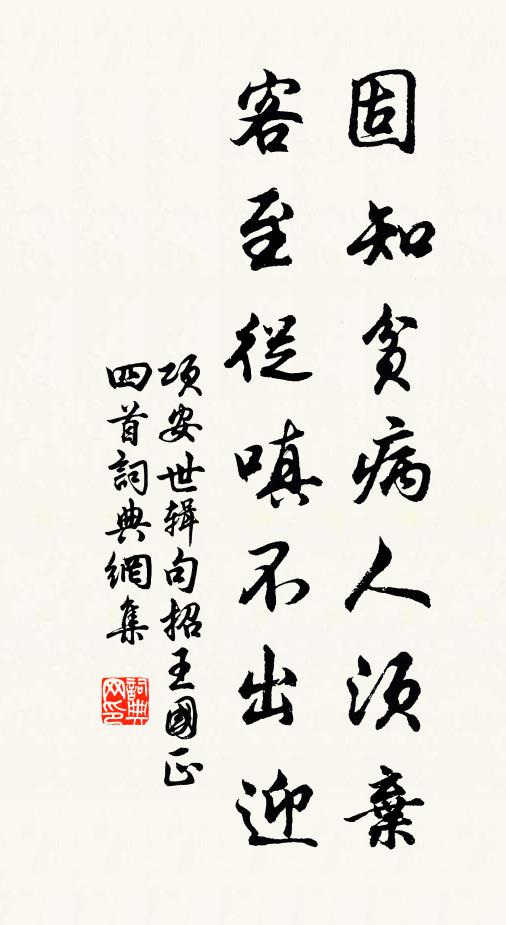 固知貧病人須棄
客至從嗔不出迎
項安世辑句招王國正
四首詞典網集
詞典網印